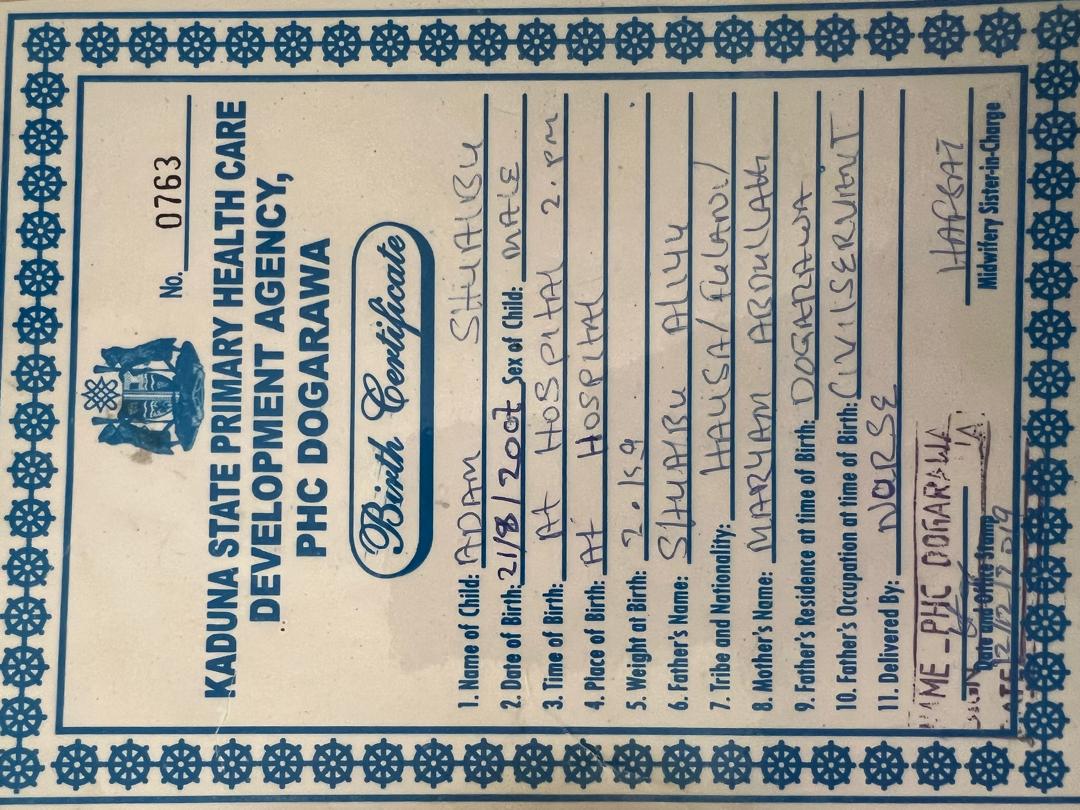 No. 0763
KADUNA STATE PRIMARY HEALTH CARE
DEVELOPMENT AGENCY,
PHC DOGARAWA
Birth Certificate
1. Name of Child: ADAM SHUAIBU
2. Date of Birth: 21/8/2007 Sex of Child: MALE
3. Time of Birth: At HOSPITAL 2. PM
4. Place of Birth: At HOSPITAL
5. Weight at Birth:
6. Father's Name: SHUAIBU ALIYU
7. Tribe and Nationality: HAUSA/FULANI/
8. Mother's Name: MARYAM ABDULLAHI
9. Father's Residence at time of Birth: DOGARAWA
10. Father's Occupation at time of Birth: CIVILSERVIANT
11. Delivered By: NURSE
NAME - PHC DOGARAWA
SIGN
Date and Office Stamp
DATE 12/12/2019
Midwifery Sister-in-Charge